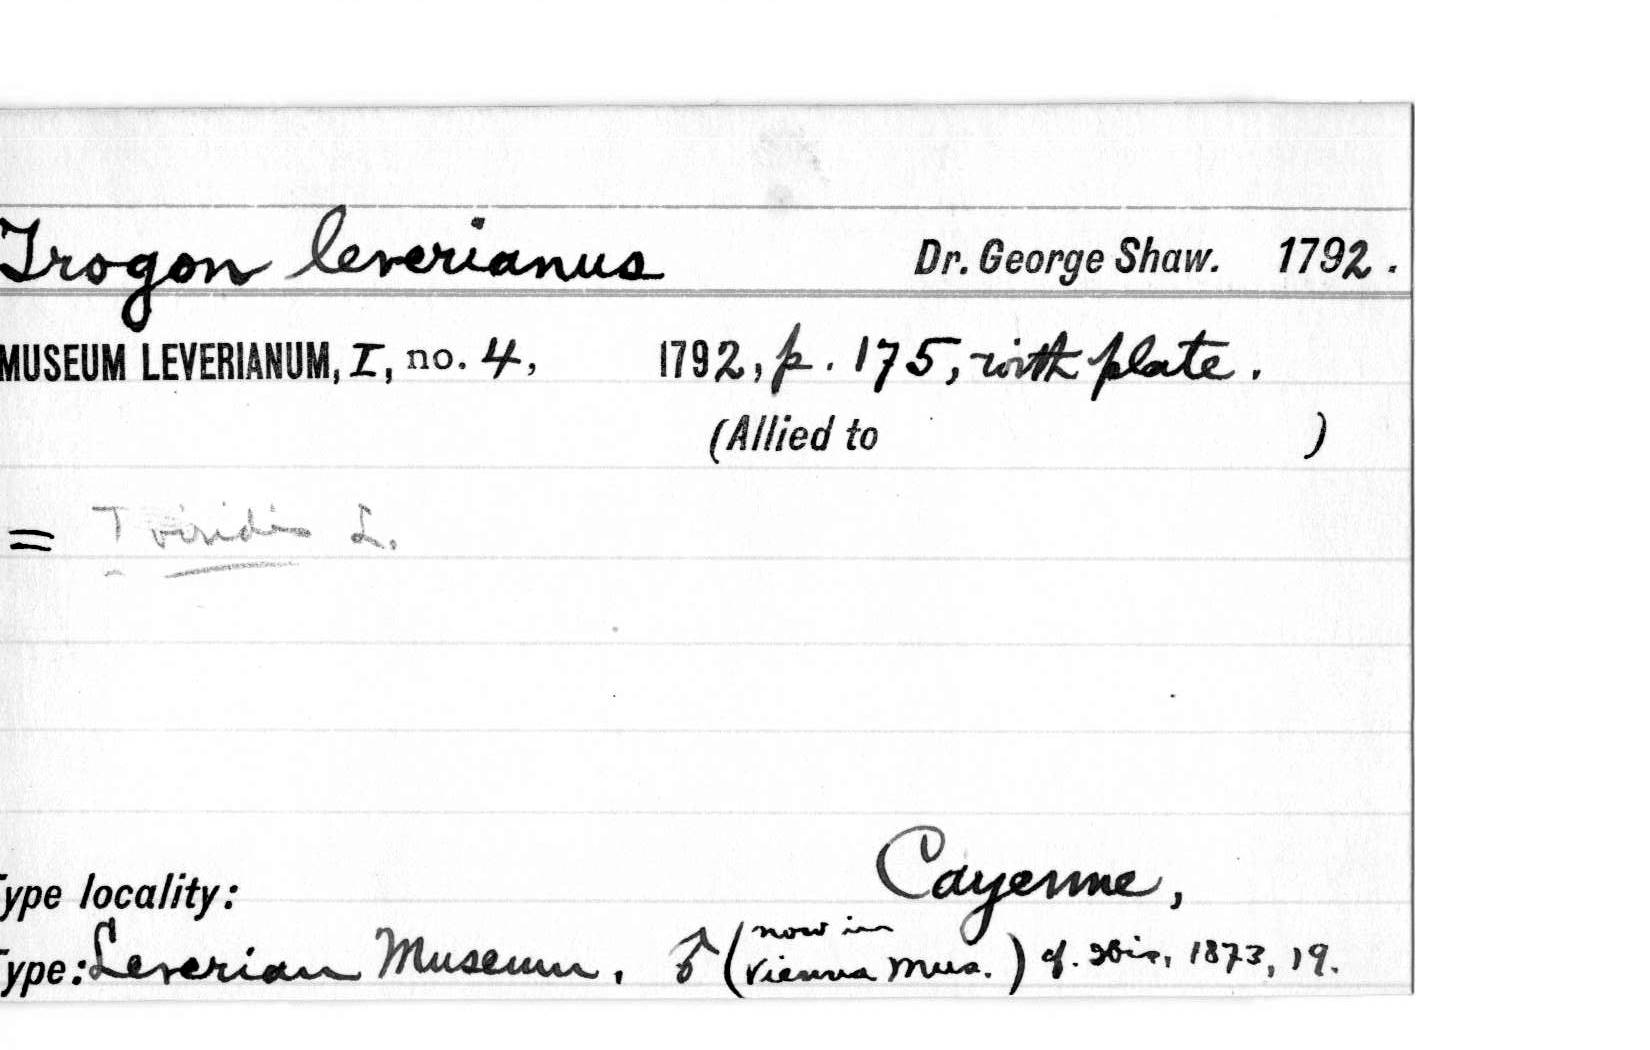 Trogon leverianus Dr. George Shaw. 1792.
MUSEUM LEVERIANUM, I, no. 4, 1792, p. 175, with plate.
(Allied to )
= T viridis L.
Type locality: Cayenne,
Type: Leverian Museum. ♂ (now in Vienna Mus.) cf. Ibis, 1873, 19.